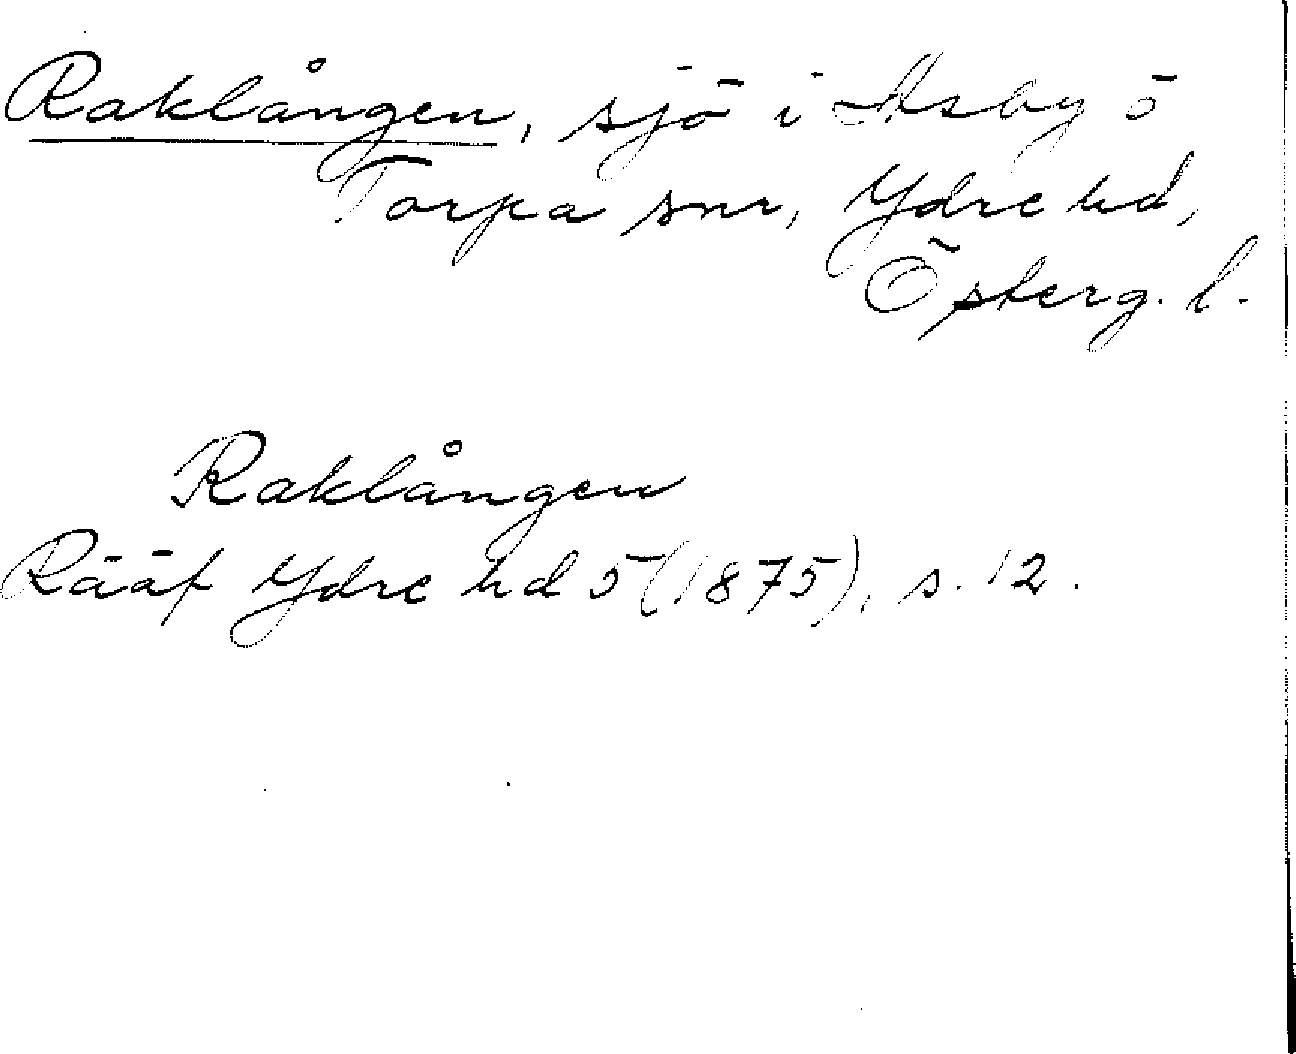 Raklången, sjö i Asby ö
Torpa snr, Ydre hd,
Österg. l.
Raklången
Rääf Ydre hd 5 (1875), s. 12.